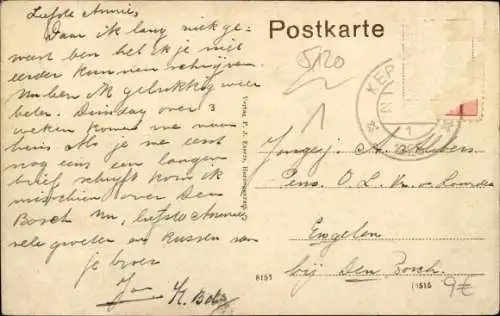 Liefste Annie,
Daar ik lang niet ge-
weest ben heb ik je niet
eerder kunnen schrijven.
Nu ben ik gelukkig weer
beter. Dinsdag over 3
weken komen we naar
huis. Als je me eerst
nog eens een langen
brief schrijft kom ik
misschien over Den
Bosch. Nu, liefste Annie
vele groeten en kussen van
je broer
Jan
Postkarte
5120
KEP
1
Verlag P. J.
Jongej. A.
Pens. O. L. Vr. v. Lourdes
Engelen
bij Den Bosch.
8151
1515
9€